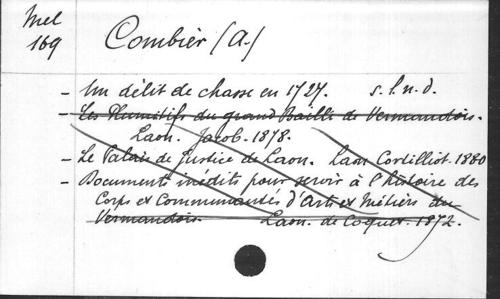 Mel
169
Combier (A.)
- Un délit de chasse en 1727. s.l.n.d.
- Les Plumitifs du grand Bailli de Vermandois.
Laon. Jacob. 1878.
- Le Palais de Justice de Laon. Laon Cortilliot. 1880
- Documents inédits pour servir à l'histoire des
Corps et Communautés d'Arts et Métiers du
Vermandois. Laon. de Coquet. 1872.